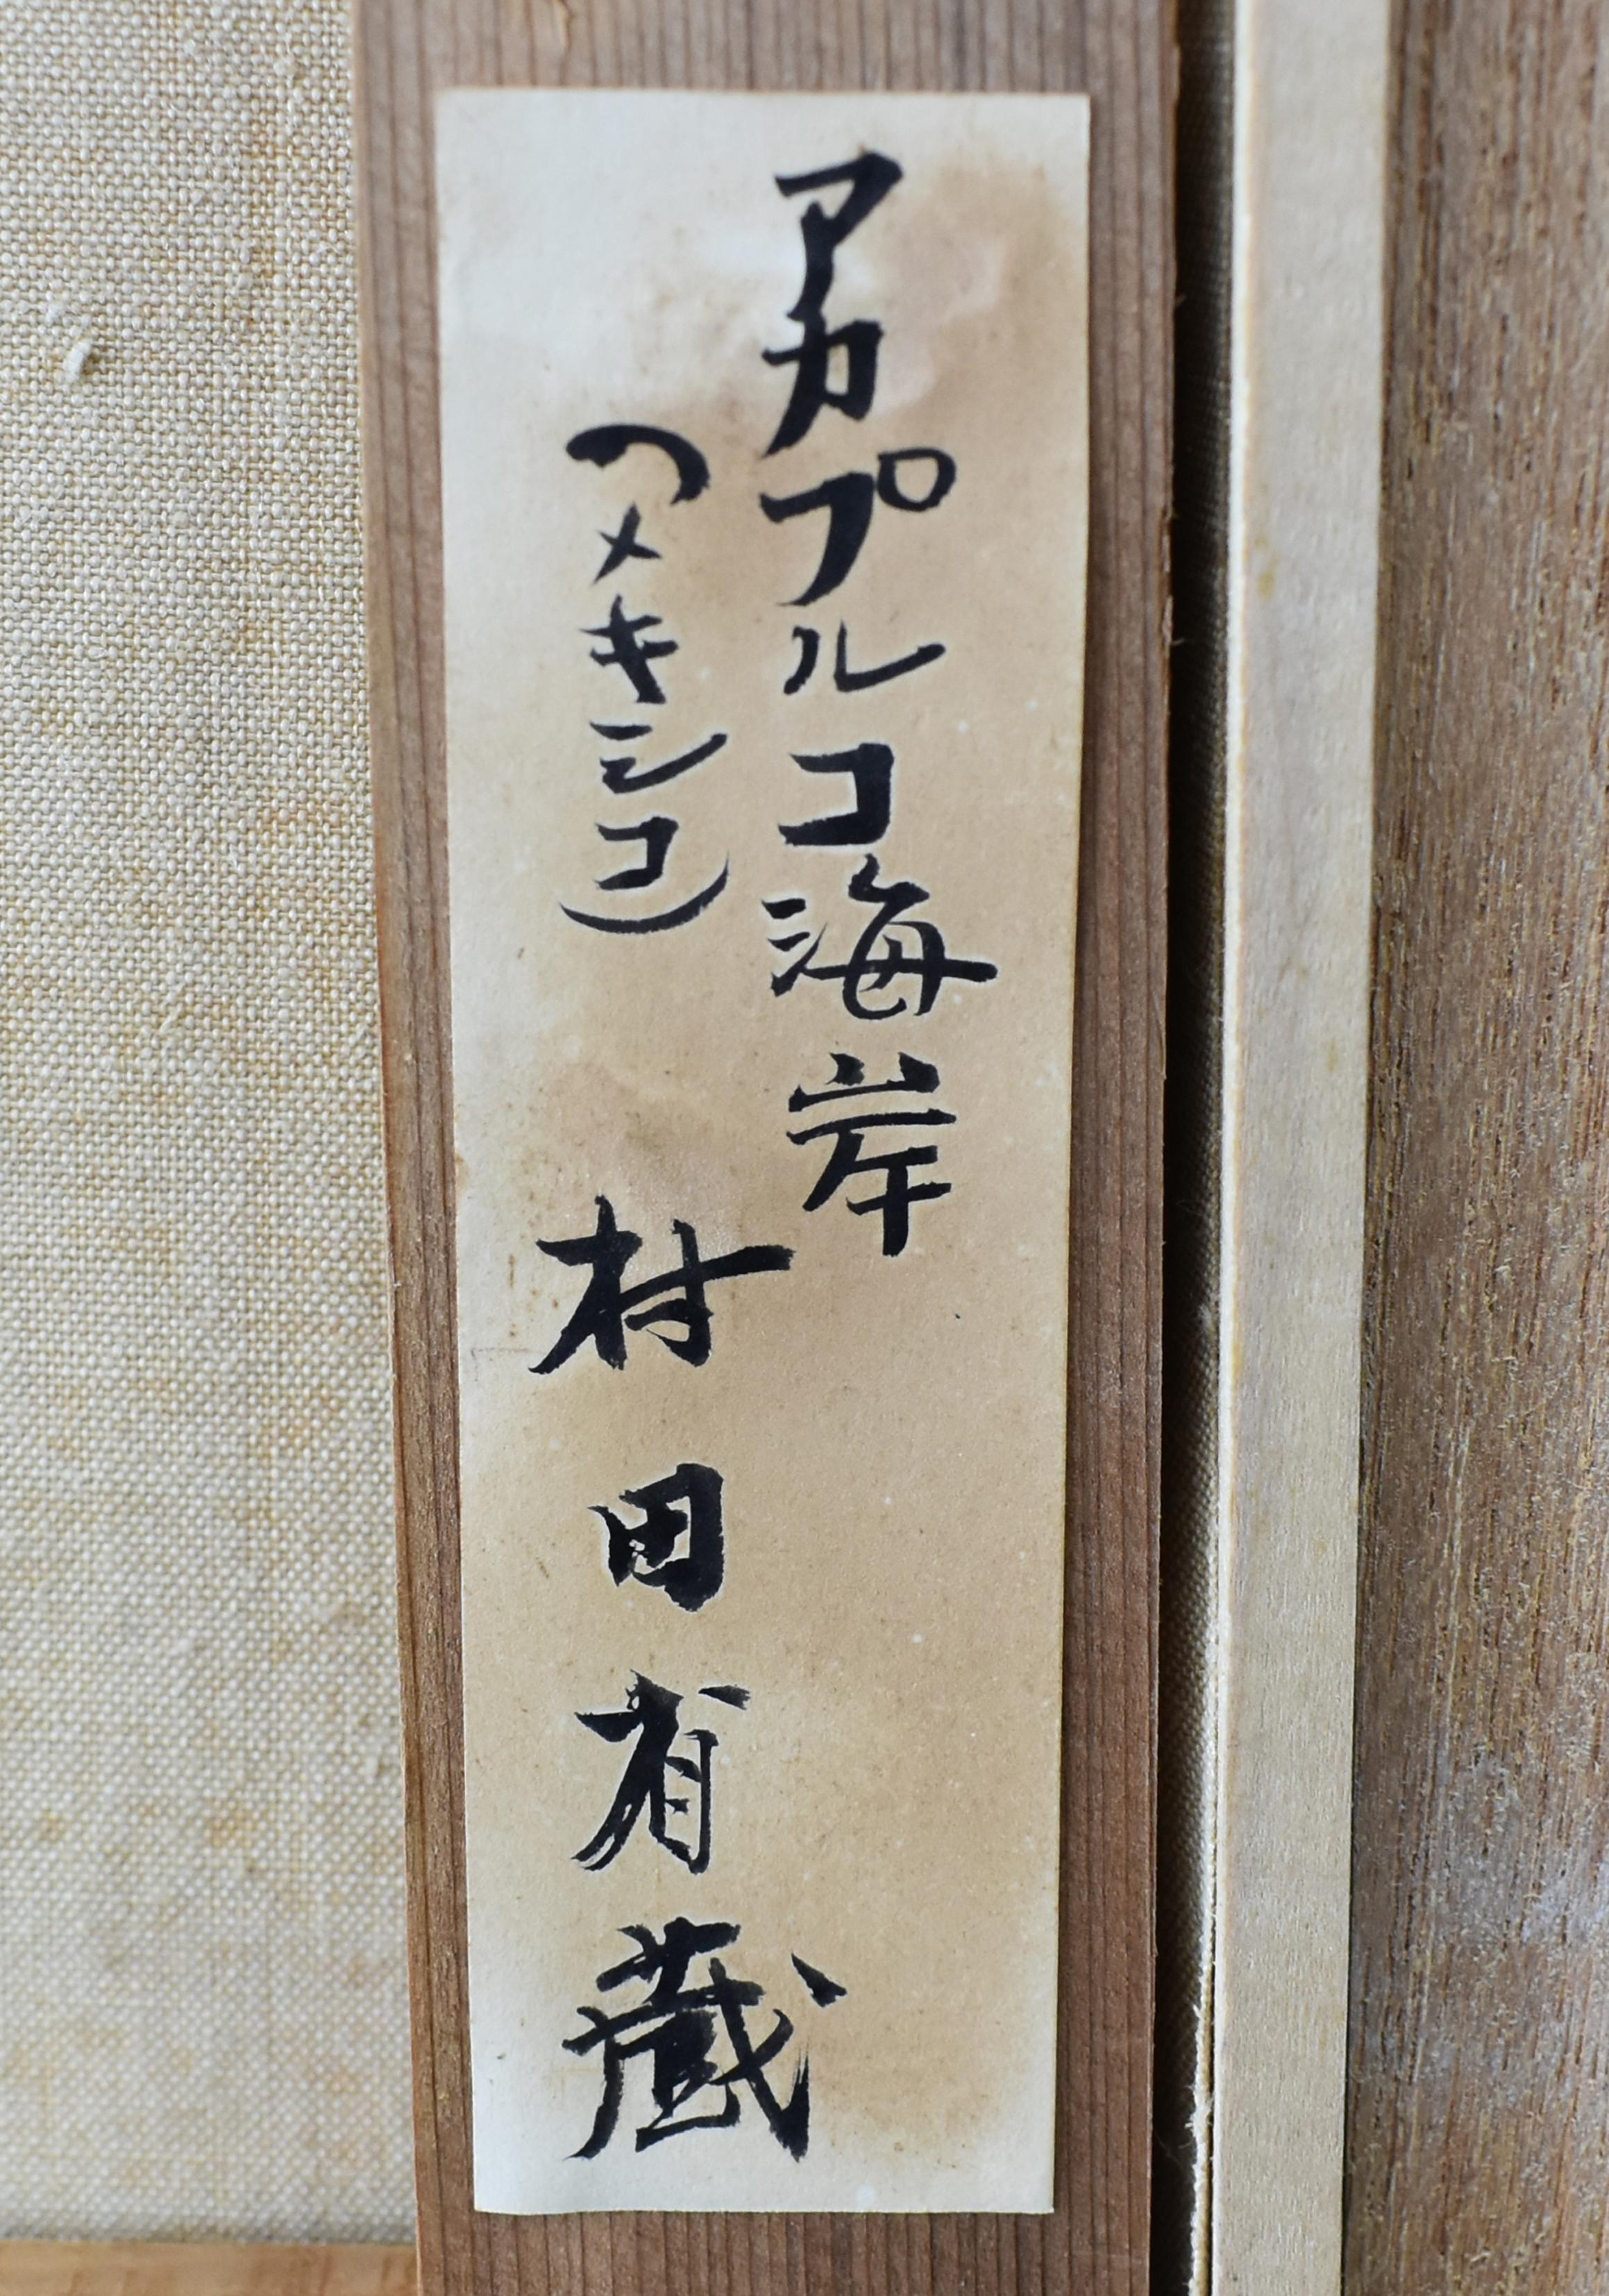 アカプルコ海岸
(メキシコ)
村田省蔵